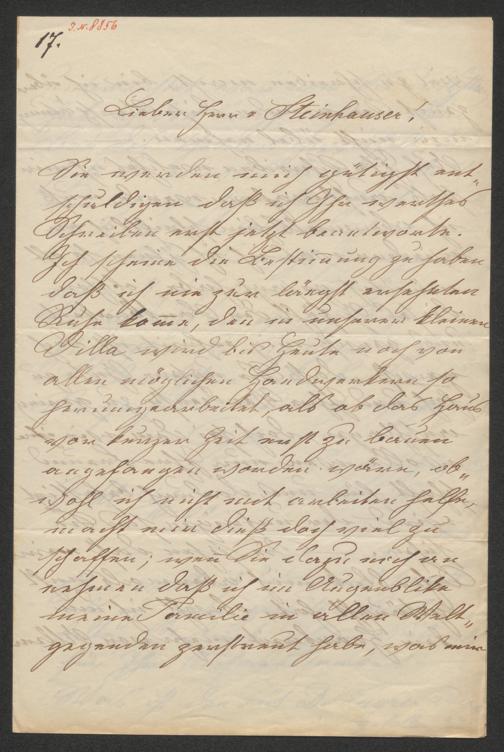 17.
I.N. 8856
Lieber Herr v Steinhauser!
Sie werden mich gütigst ent„
schuldigen daß ich Ihr werthes
Schreiben erst jetzt beantworte.
Ich scheine die Bestimmung zu haben
daß ich nie zur längst ersehnten
Ruhe komme, den in unserer kleinen
Villa wird bis heute noch von
allen möglichen Handwerkern so
herumgearbeitet, als ob das Haus
vor kurzer Zeit erst zu bauen
angefangen worden wäre, ob„
wohl ich nicht mit arbeiten helfe,
macht mir dieß doch viel zu
schaffen; wen Sie dazu noch an
nehmen daß ich im Augenblike
meine Familie in allen Welt„
gegenden zerstreut habe, was mir